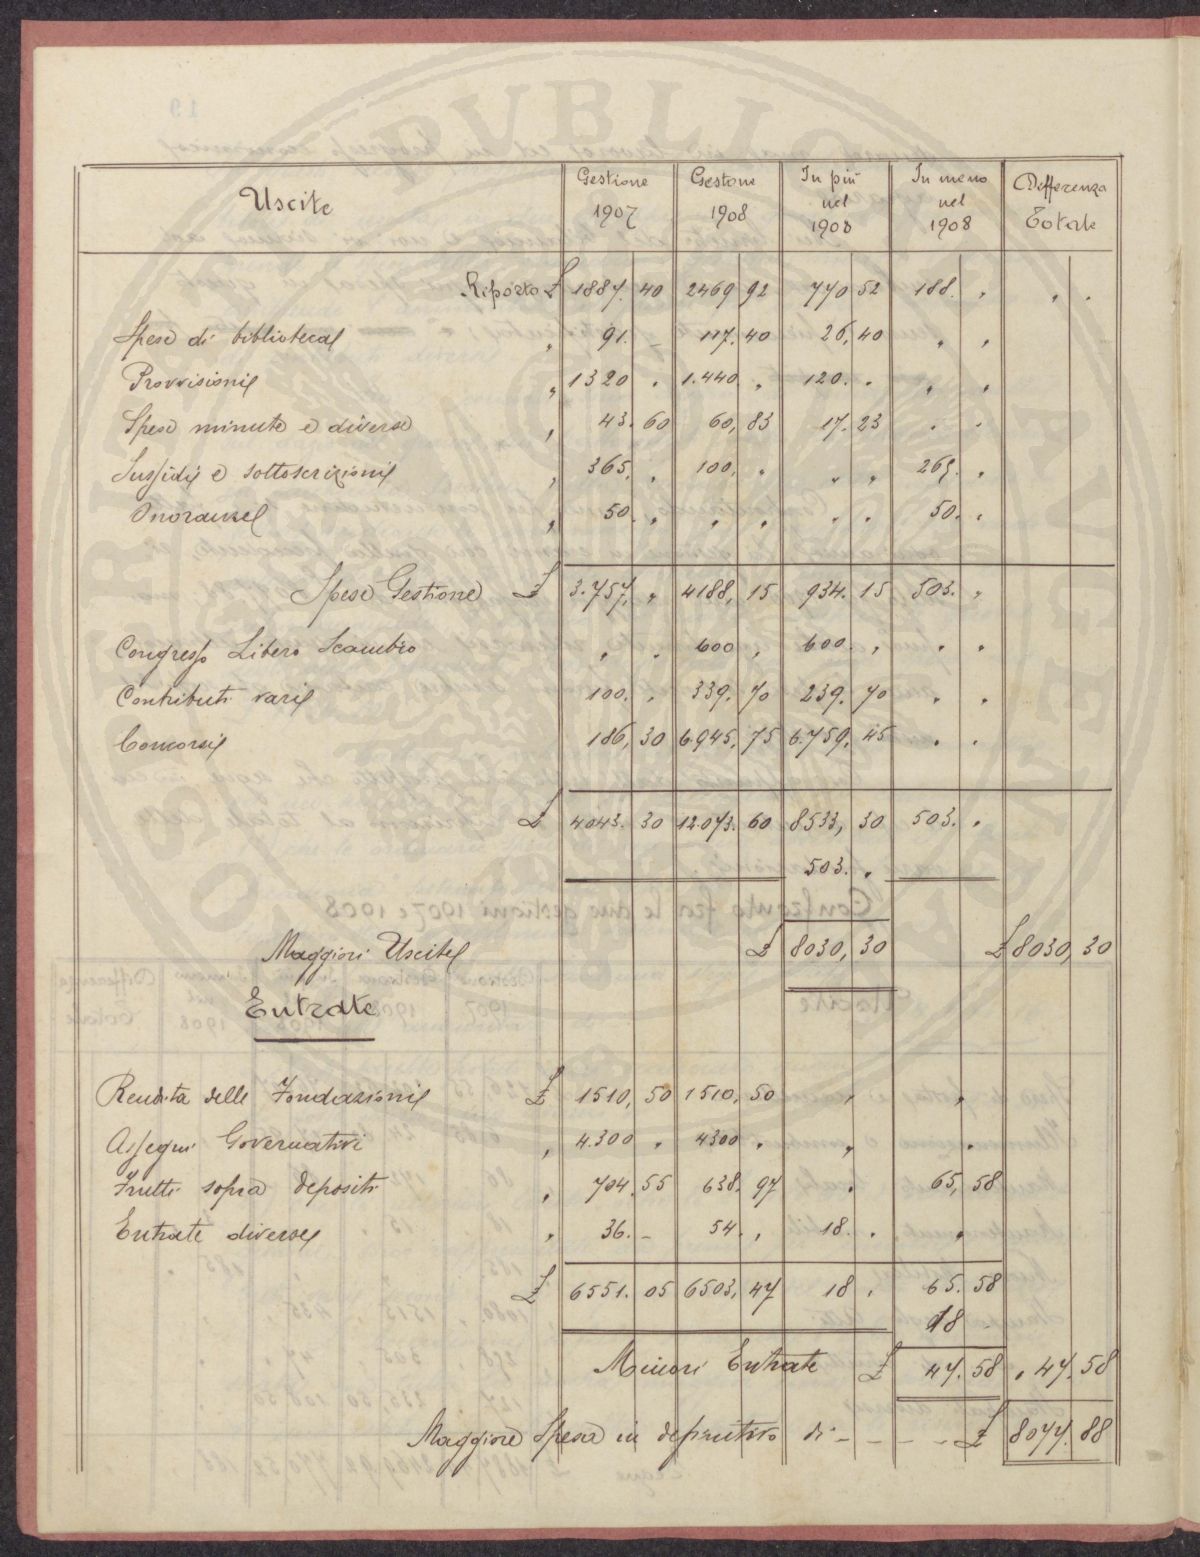 Uscite | Gestione 1907 | Gestone 1908 | In più nel 1908 | In meno nel 1908 | Differenza Totale
Riporto £ 1887. 40 | 2469 92 | 770 52 | 188. „ | „ „
Spese di biblioteca „ 91. – | 117. 40 | 26, 40 | „ „
Provvisioni „ 1320 „ | 1.440 „ | 120. „ | „ „
Spese minute e diverse „ 43. 60 | 60, 83 | 17. 23 | „ „
Sussidi e sottoscrizioni „ 365, „ | 100, „ | „ „ | 265. „
Onoranze „ 50. „ | „ „ | „ „ | 50. „
Spese Gestione £ 3.757, „ | 4188, 15 | 934. 15 | 503. „
Congresso Libero Scambio „ „ | 600 „ | 600. „ | „ „
Contributi vari 100. „ | 339. 70 | 239. 70 | „ „
Concorsi 186, 30 | 6.945, 75 | 6.759, 45 | „ „
£ 4043. 30 | 12.073. 60 | 8533, 30 | 503. „
503. „
Maggiori Uscite £ 8030, 30 £ 8030, 30
Entrate
Rendita delle Fondazioni £ 1510, 50 | 1510, 50 | „ | „
Assegni Governativi „ 4.300 „ | 4300 „ | „ | „
Frutti sopra depositi „ 704. 55 | 638. 97 | „ | 65, 58
Entrate diverse „ 36. – | 54. „ | 18. „ | „
£ 6551. 05 | 6503, 47 | 18 „ | 65. 58
18 –
Minori Entrate £ 47. 58 „ 47. 58
Maggiore Spesa in definitivo di – – – – £ 8077. 88